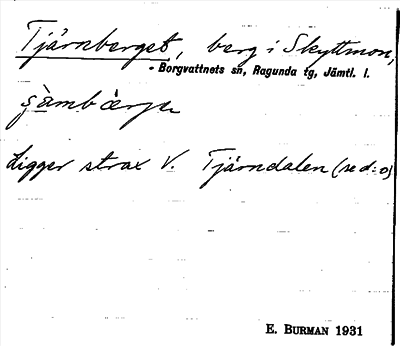 Tjärnberget, berg i Skyttmon,
Borgvattnets sn, Ragunda tg, Jämtl. l.
Ligger strax V. Tjärndalen (se d:o)
E. BURMAN 1931